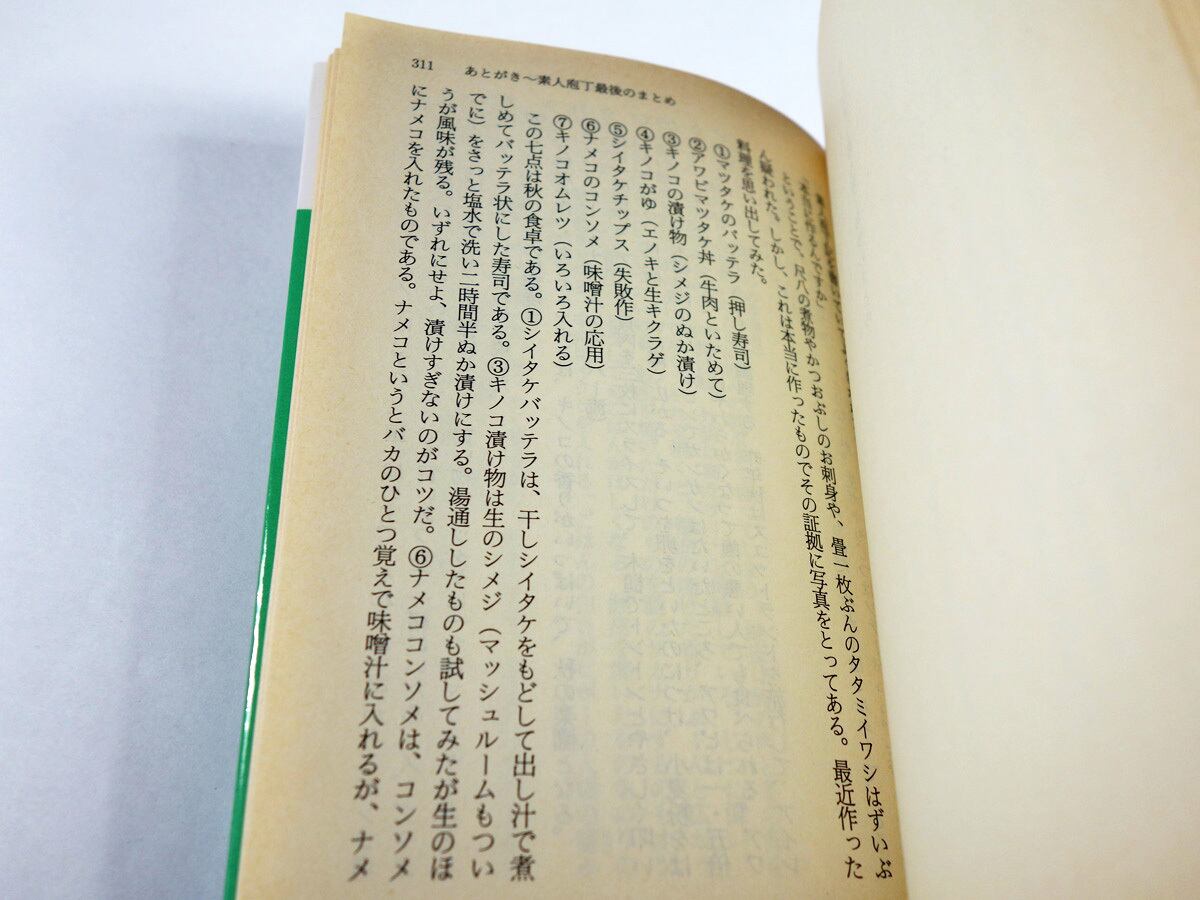 311 あとがき～素人庖丁最後のまとめ
「本当に作るんですか」
ということで、尺八の煮物やかつおぶしのお刺身や、畳一枚ぶんのタタミイワシはずいぶ
ん疑われた。しかし、これは本当に作ったものでその証拠に写真をとってある。最近作った
料理を思い出してみた。
①マツタケのバッテラ（押し寿司）
②アワビマツタケ丼（牛肉といためて）
③キノコの漬け物（シメジのぬか漬け）
④キノコがゆ（エノキと生キクラゲ）
⑤シイタケチップス（失敗作）
⑥ナメコのコンソメ（味噌汁の応用）
⑦キノコオムレツ（いろいろ入れる）
この七点は秋の食卓である。①シイタケバッテラは、干しシイタケをもどして出し汁で煮
しめてバッテラ状にした寿司である。③キノコ漬け物は生のシメジ（マッシュルームもつい
でに）をさっと塩水で洗い二時間半ぬか漬けにする。湯通ししたものも試してみたが生のほ
うが風味が残る。いずれにせよ、漬けすぎないのがコツだ。⑥ナメココンソメは、コンソメ
にナメコを入れたものである。ナメコというとバカのひとつ覚えで味噌汁に入れるが、ナメ